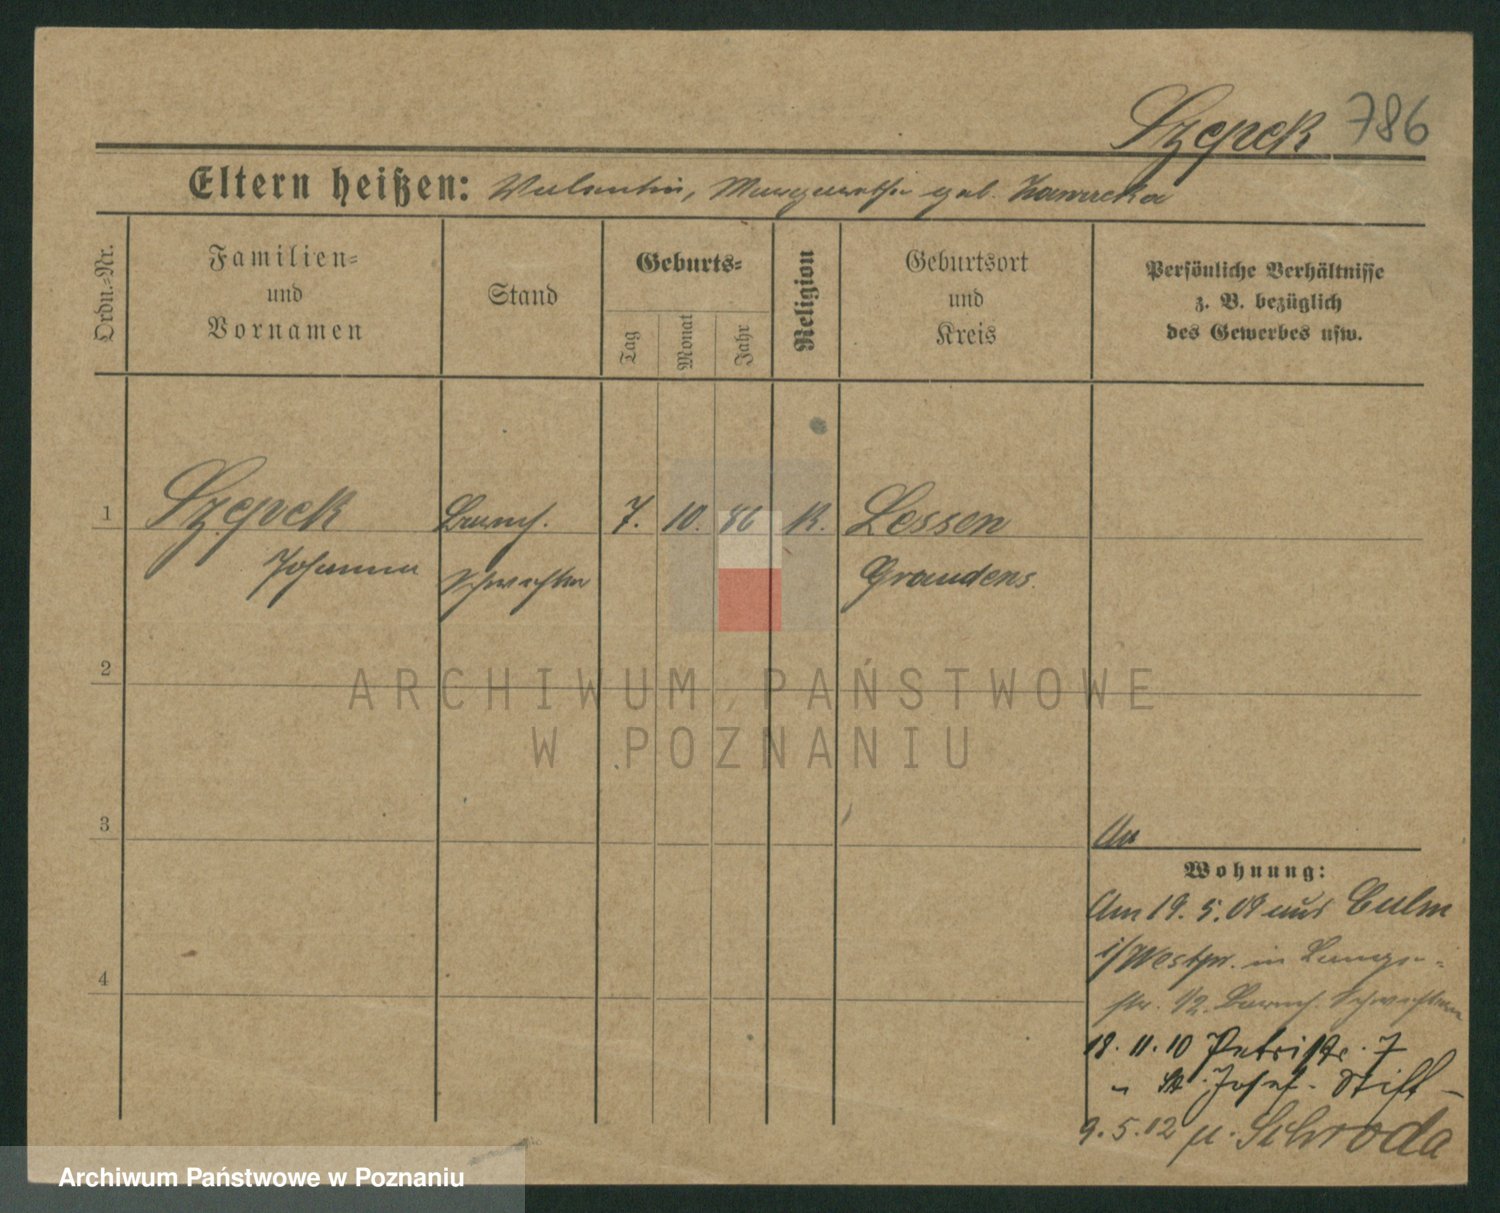 Szepek 786
Eltern heißen: Valentin, Margarethe geb. Zawacka
Ordn.=Nr.
Familien=
und
Vornamen
Stand
Geburts=
Tag
Monat
Jahr
Religion
Geburtsort
und
Kreis
Persönliche Verhältnisse
z. B. bezüglich
des Gewerbes usw.
1 Szepek Barmh. 7. 10. 86 K. Lessen
Johanna Schwester Graudenz.
2
3
4
Wohnung:
Am 19. 5. 09 aus Culm
i/Westpr. in Lange=
str. 1/2. Barmh. Schwestern
18. 11. 10 Petristr. 7
" St. Josef-Stift
9. 5. 12 n. Schroda
ARCHIWUM PAŃSTWOWE
W POZNANIU
Archiwum Państwowe w Poznaniu